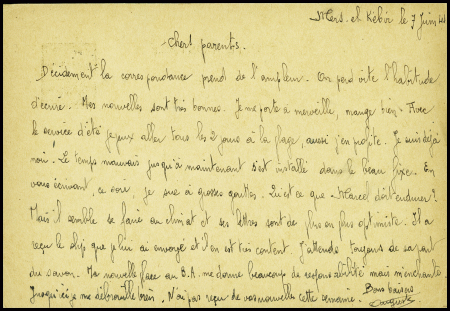 Mers el Kébir le 7 Juin
Chers parents.
Décidement la correspondance prend de l'ampleur. On perd vite l'habitude
d'écrire. Mes nouvelles sont très bonnes. Je me porte à merveille, mange bien. Avec
le service d'été je peux aller tous les 2 jours à la plage, aussi j'en profite. Je suis déjà
noir. Le temps mauvais jusqu'à maintenant s'est installé dans le beau fixe. En
vous écrivant ce soir je sue à grosses gouttes. Qu'est ce que Marcel doit endurer?
Mais il semble se faire au climat et ses lettres sont de plus en plus optimiste. Il a
reçu le slip que je lui ai envoyé et il en est très content. J'attends toujours de sa part
du savon. Ma nouvelle place au B.A. me donne beaucoup de responsabilité mais m'enchante.
Jusqu'ici je me débrouille bien. N'ai pas reçu de vos nouvelles cette semaine. Bons baisers